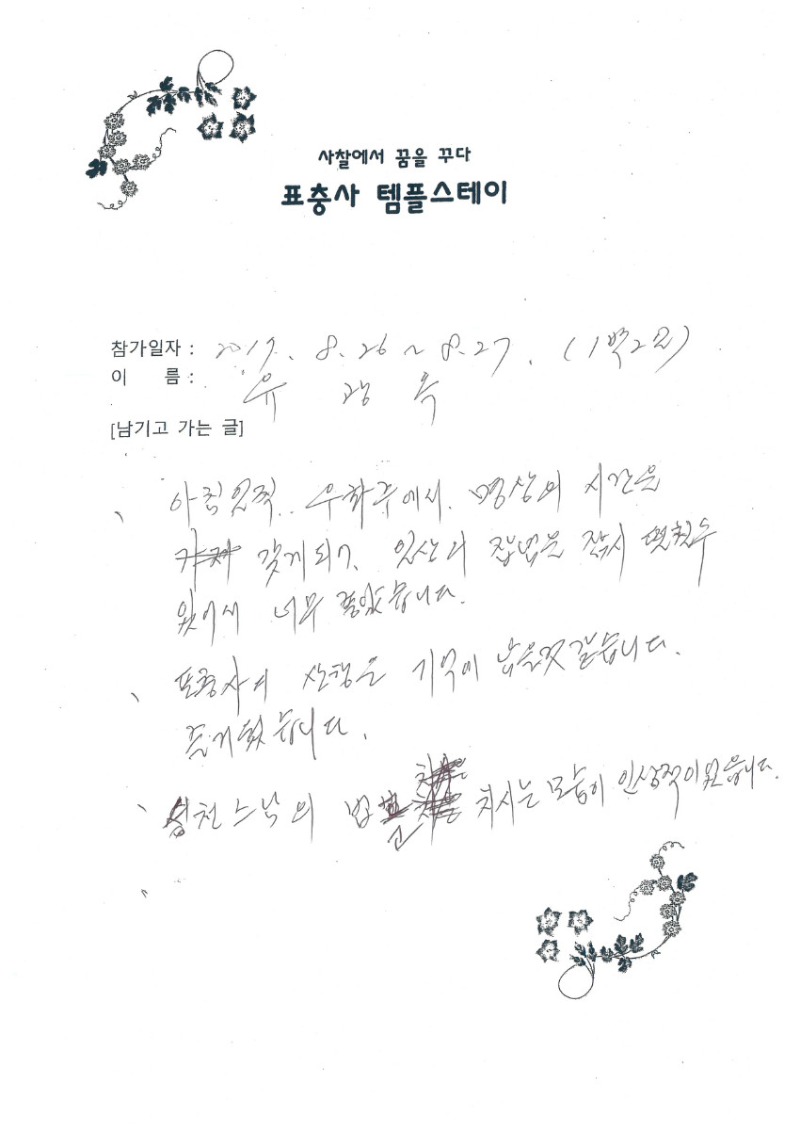 사찰에서 꿈을 꾸다
표충사 템플스테이
참가일자 : 2019. 8. 26 ~ 8.27. (1박2일)
이 름 : 유 광 옥
[남기고 가는 글]
、 아침일찍.. 우화루에서. 명상의 시간은
갖게되기. 일상의 잡념을 잠시
있어서 너무 좋았습니다.
、 표충사의 산행은 기억에 남을것 같습니다.
즐거웠습니다.
、 스님의 법고 치시는 모습이 인상적이였습니다.
、